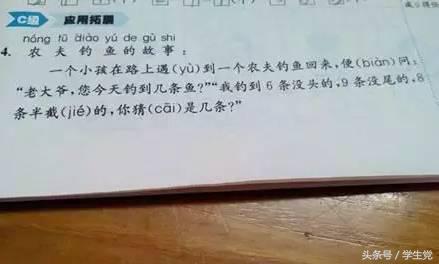 C级 应用拓展
nóng fū diào yú de gù shi
4. 农夫钓鱼的故事：
一个小孩在路上遇(yù)到一个农夫钓鱼回来,便(biàn)问：
“老大爷,您今天钓到几条鱼?”“我钓到6条没头的,9条没尾的,8
条半截(jié)的,你猜(cāi)是几条?”
头条号 / 学生党